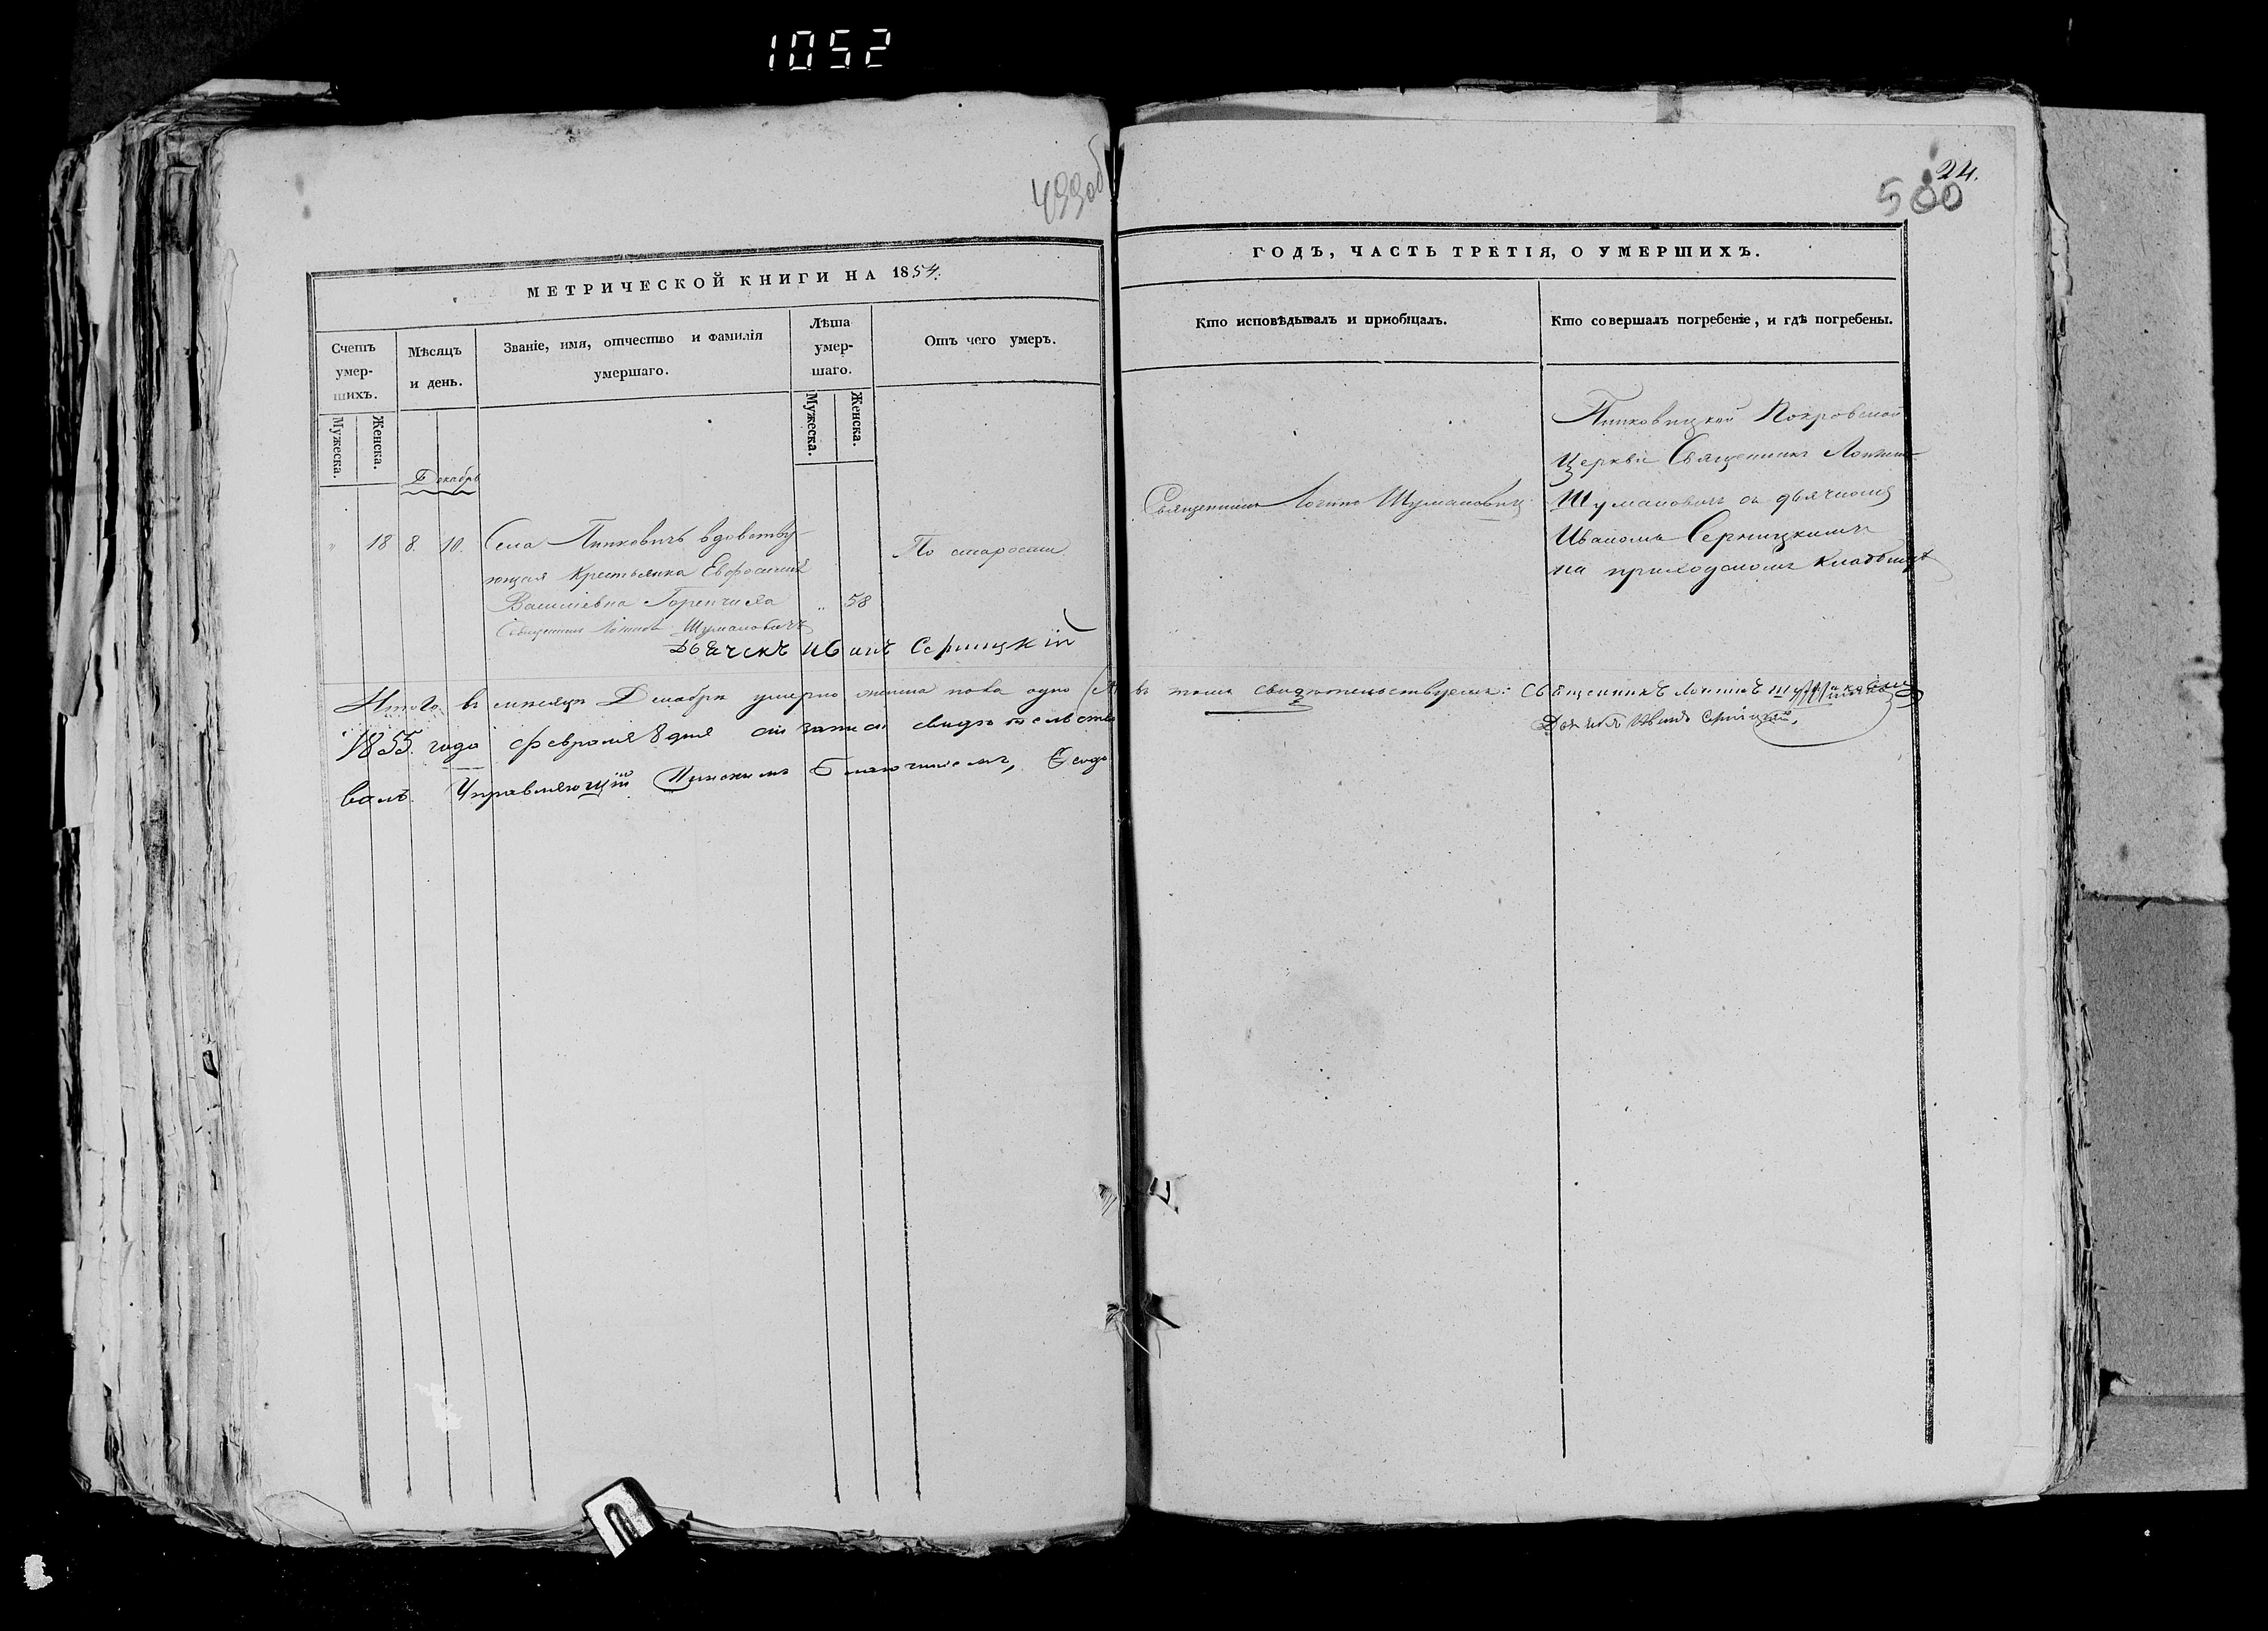 1052
499об
МЕТРИЧЕСКОЙ КНИГИ НА 1854.
Счетъ умершихъ.
Мужеска.
Женска.
Мѣсяцъ и день.
Званіе, имя, отчество и фамилія умершаго.
Лѣта умершаго.
Мужеска.
Женска.
Отъ чего умеръ.
Декабрь
" 18 8. 10. Села Пинковичъ вдовству-
ющая Крестьянка Евфросинія
Василіевна " 58
По старости.
Священникъ Логинъ Шумановичъ
Дьячекъ Иванъ Серницкій
Итого въ мѣсяцѣ Декабрѣ умерло женска пола одно
1855 года февраля 8 дня сіи записи свидѣтельство
валъ. Управляющій Пинскимъ Благочиніемъ,
24.
500
ГОДЪ, ЧАСТЬ ТРЕТІЯ, О УМЕРШИХЪ.
Кто исповѣдывалъ и пріобщалъ.
Кто совершалъ погребеніе, и гдѣ погребены.
Священникъ Логинъ Шумановичъ
Пинковицкой Покровской
Церкви Священникъ Логинъ
Шумановичъ съ дьячкомъ
Иваномъ Серницкимъ
на приходскомъ кладбищѣ
въ томъ свидѣтельствуемъ: Священникъ Логинъ Шумановичъ
Дьячекъ Иванъ Серницкій.